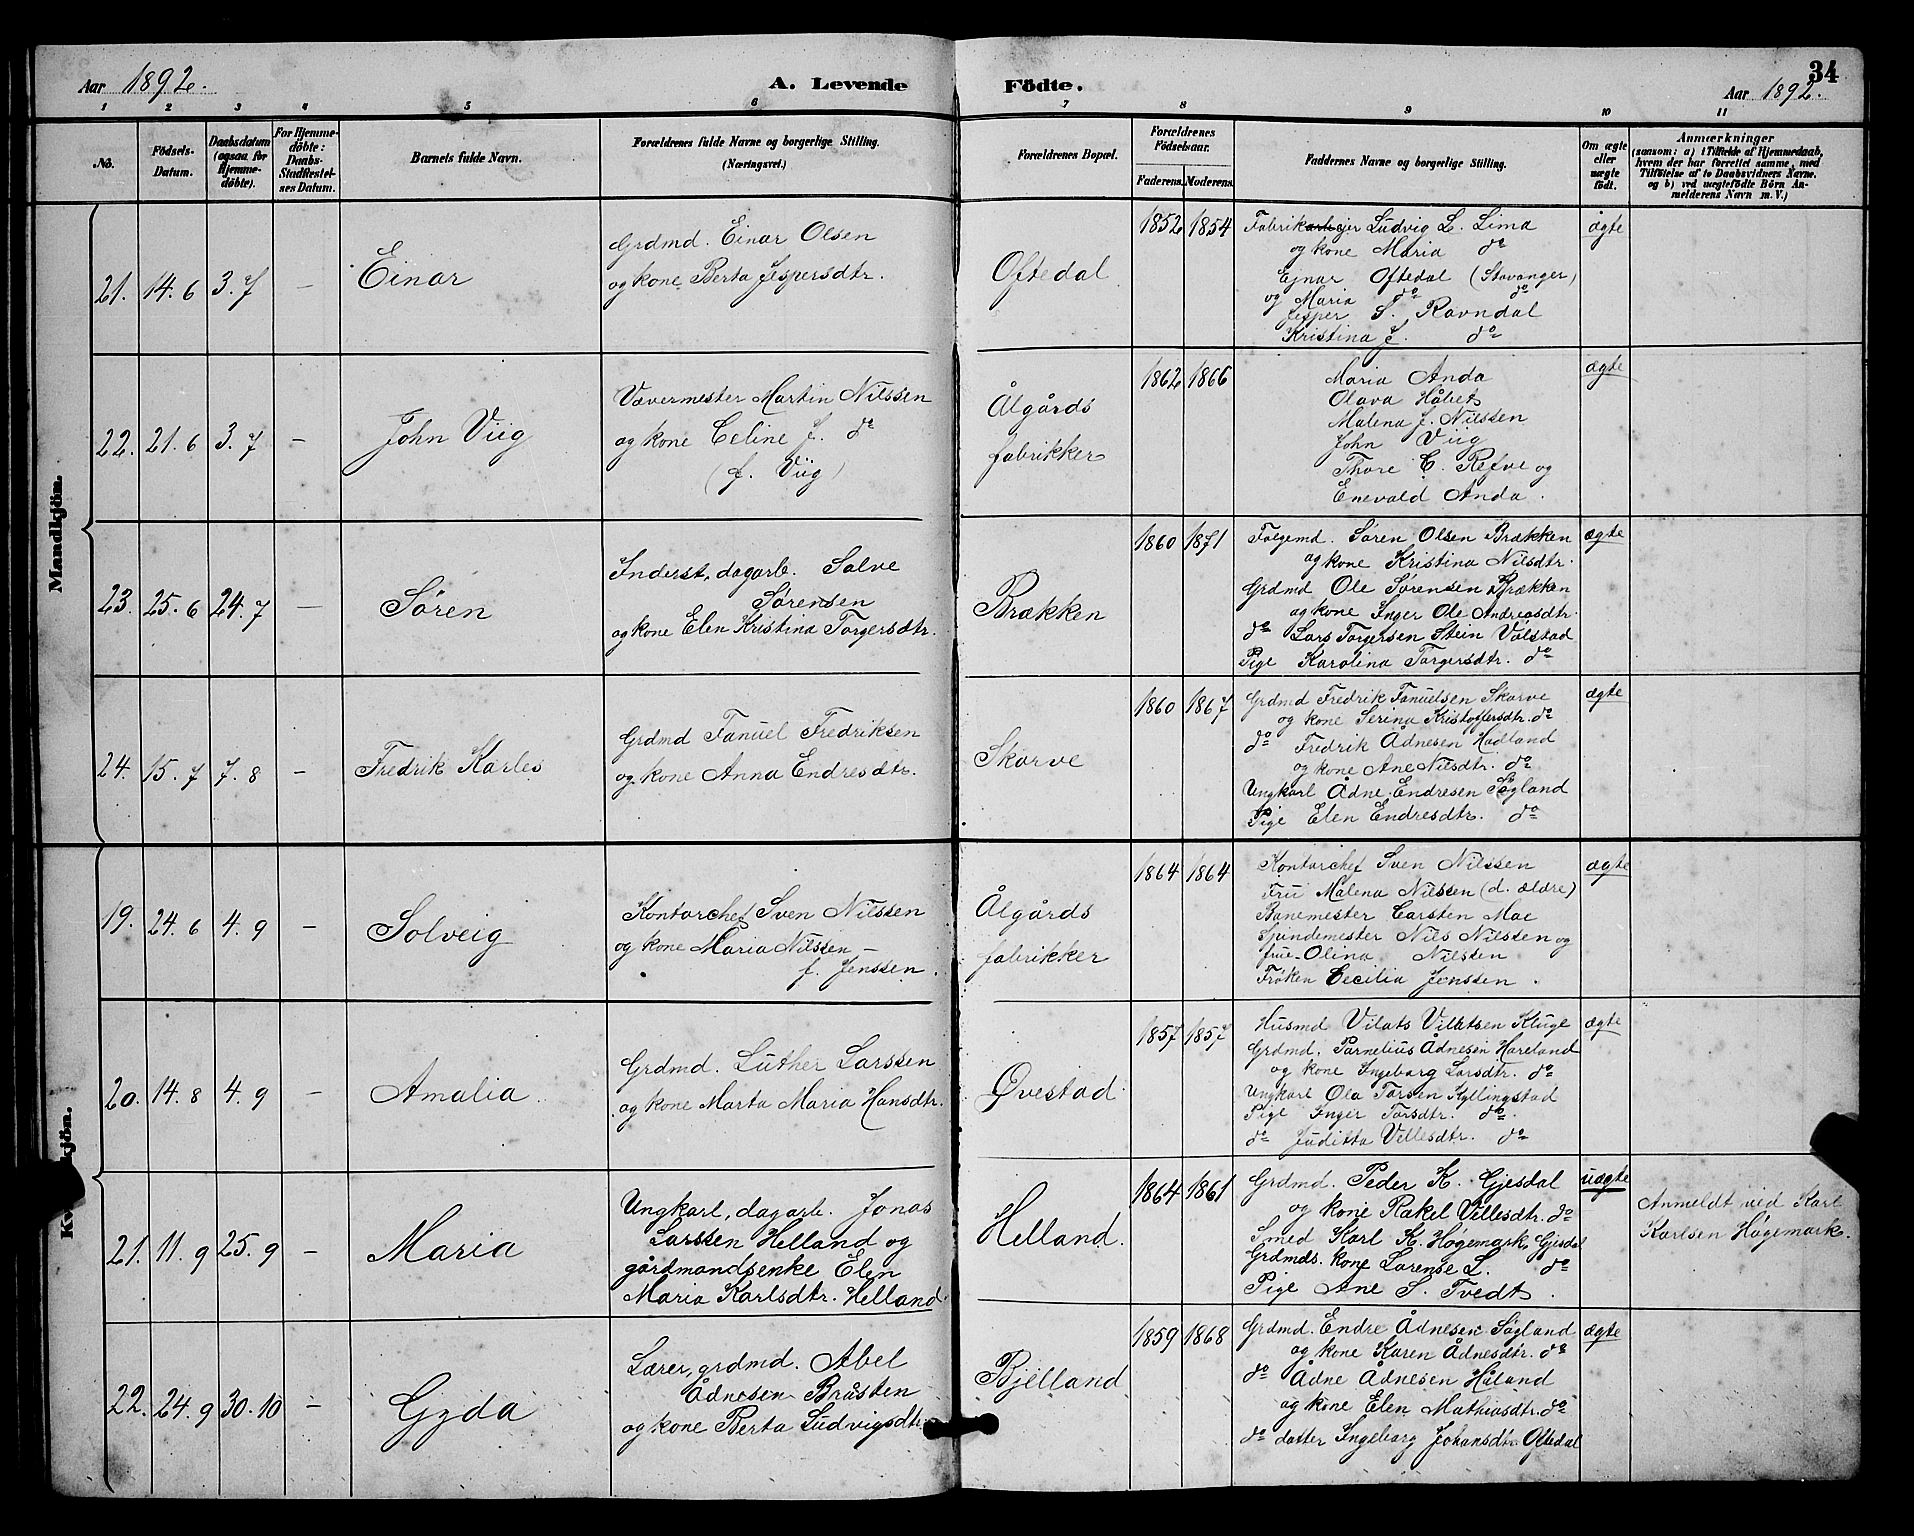 34
Aar 1892.
A. Levende Födte.
Aar 1892.
1 2 3 4 5 6 7 8 9 10 11
No.
Födsels-
Datum.
Daabsdatum
(ogsaa for
Hjemme-
döbte).
For Hjemme-
döbte:
Daabs-
Stadfæstel-
ses Datum.
Barnets fulde Navn.
Forældrenes fulde Navne og borgerlige Stilling.
(Næringsvei.)
Forældrenes Bopæl.
Forældrenes
Födselsaar.
Faderens. Moderens.
Faddernes Navne og borgerlige Stilling.
Om ægte
eller
uægte
födt.
Anmærkninger
(saasom: a) i Tilfælde af Hjemmedaab,
hvem der har forrettet samme, med
Tilföielse af to Daabsvidners Navne.
og b) ved uægtefödte Börn An-
melderens Navn m. V.)
Mandkjön.
21. 14.6 3.7 –
Einar
Grdmd. Einar Olsen
og kone Berta Jespersdtr.
Oftedal
1852 1854
Fabrikarbejer Ludvig L. Lima
og kone Maria do
Ejnar Oftedal (Stavanger)
og Maria do do
Jesper S. Ravndal
Kristina J. do
ægte
22. 21.6 3.7 –
John Viig
Vævermester Martin Nilssen
og kone Celine J. do
(f. Viig)
Ålgårds
fabrikker
1862 1866
Maria Anda
Olava Håbet
Malena J. Nilssen
John Viig
Thore C. Refve og
Enevald Anda.
ægte
23. 25.6 24.7 –
Sören
Inderst, dagarb. Salve
Sörensen
og kone Elen Kristina Torgersdtr.
Brækken
1860 1871
Folgemd. Sören Olsen Brækken
og kone Kristina Nilsdtr.
Grdmd Ole Sörensen Brækken
og kone Inger Ole Andreasdtr.
do Lars Torgersen Stein Vålstad
Pige Karolina Torgersdtr. do
ægte
24. 15.7 7.8 –
Fredrik Karles
Grdmd Fanuel Fredriksen
og kone Anna Endresdtr.
Skarve
1860 1867
Grdmd Fredrik Fanuelsen Skarve
og kone Serina Kristoffersdtr. do
do Fredrik Ådnesen Hadland
og kone Ane Nilsdtr. do
Ungkarl Ådne Endresen Søgland
Pige Elen Endresdtr. do
ægte
Kv kjön.
19. 24.6 4.9 –
Solveig
Kontorchef Sven Nilssen
og kone Maria Nilssen –
f. Jenssen.
Ålgårds
fabrikker
1864 1864
Kontorchef Sven Nilssen
Fru Malena Nilssen (d. ældre)
Banemester Carsten Moe
Spindemester Nils Nilssen og
frue Olina Nilsten
Frøken Cecilia Jenssen.
ægte
20. 14.8 4.9 –
Amalia
Grdmd. Luther Larssen
og kone Marta Maria Hansdtr.
Øvestad
1857 1857
Husmd Vilats Villatsen Kluge
Grdmd. Parnelius Ådnesen Hareland
og kone Ingeborg Larsdtr. do
Ungkarl Ola Torsen Kyllingstad
Pige Inger Torsdtr. do
do Juditta Villesdtr. do
ægte
21. 11.9 25.9 –
Maria
Ungkarl, dagarb. Jonas
Larssen Helland og
gårdmandsenke Elen
Maria Karlsdtr. Helland
Helland.
1864 1861
Grdmd. Peder K. Gjesdal
og kone Rakel Villesdtr. do
Smed Karl K. Høgemark, Gjesdal
Grdmds. kone Lorense L. do
Pige Ane S. Tvedt.
uægte
Anmeldt ved Karl
Karlsen Høgemark.
22. 24.9 30.10 –
Gyda
Lærer, grdmd. Abel
Ådnesen Bråsten
og kone Berta Ludvigsdtr.
Bjelland
1859 1868
Grdmd. Endre Ådnesen Søgland
og kone Karen Ådnesdtr. do
do Ådne Ådnesen Håland
og kone Elen Mathiasdtr. do
do datter Ingeborg Johansdtr. Oftedal
ægte